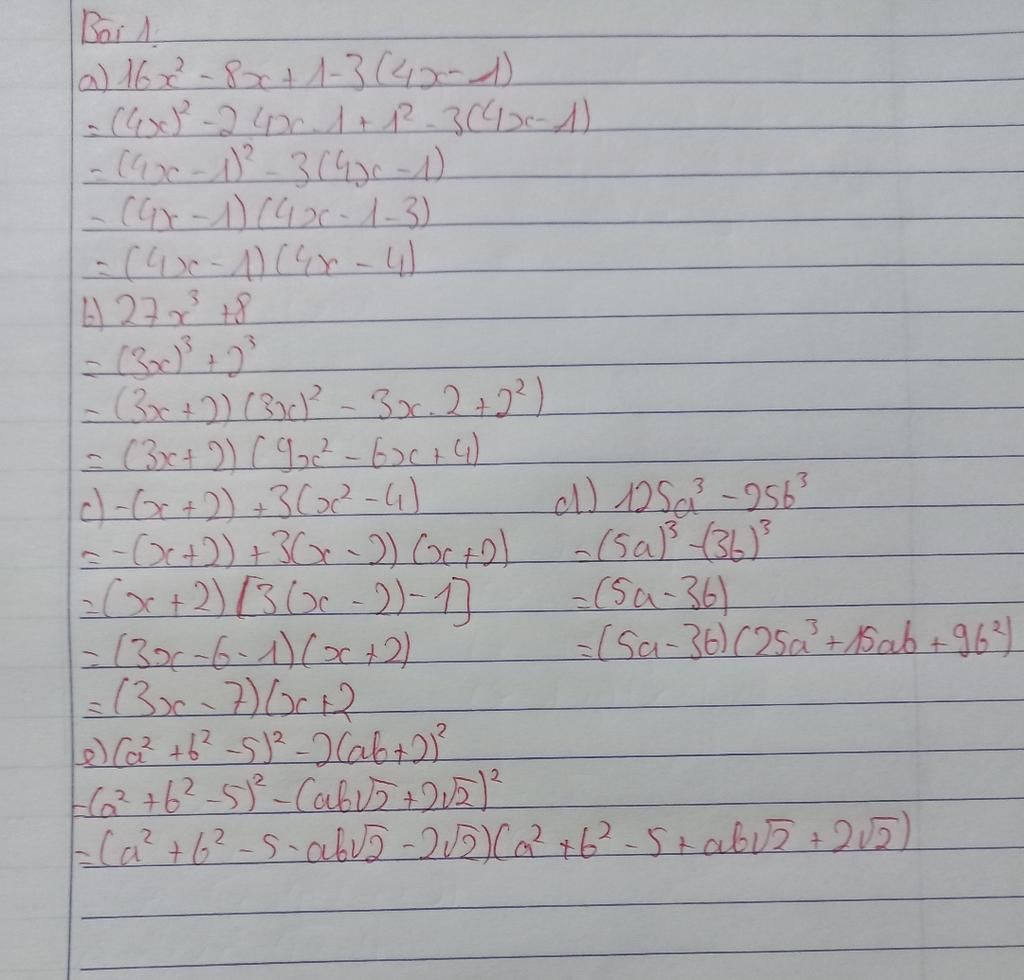 Bài 1.
a) 16x² - 8x + 1 - 3(4x - 1)
= (4x)² - 2.4x.1 + 1² - 3(4x - 1)
= (4x - 1)² - 3(4x - 1)
= (4x - 1)(4x - 1 - 3)
= (4x - 1)(4x - 4)
b) 27x³ + 8
= (3x)³ + 2³
= (3x + 2)(3x)² - 3x.2 + 2²)
= (3x + 2)(9x² - 6x + 4)
c) -(x + 2) + 3(x² - 4)
= -(x + 2) + 3(x - 2)(x + 2)
= (x + 2)[3(x - 2) - 1]
= (3x - 6 - 1)(x + 2)
= (3x - 7)(x + 2
d) 125a³ - 25b³
= (5a)³ - (3b)³
= (5a - 3b)
= (5a - 3b)(25a³ + 15ab + 9b²)
e) (a² + b² - 5)² - 2(ab + 2)²
= (a² + b² - 5)² - (ab√2 + 2√2)²
= (a² + b² - 5 - ab√2 - 2√2)(a² + b² - 5 + ab√2 + 2√2)